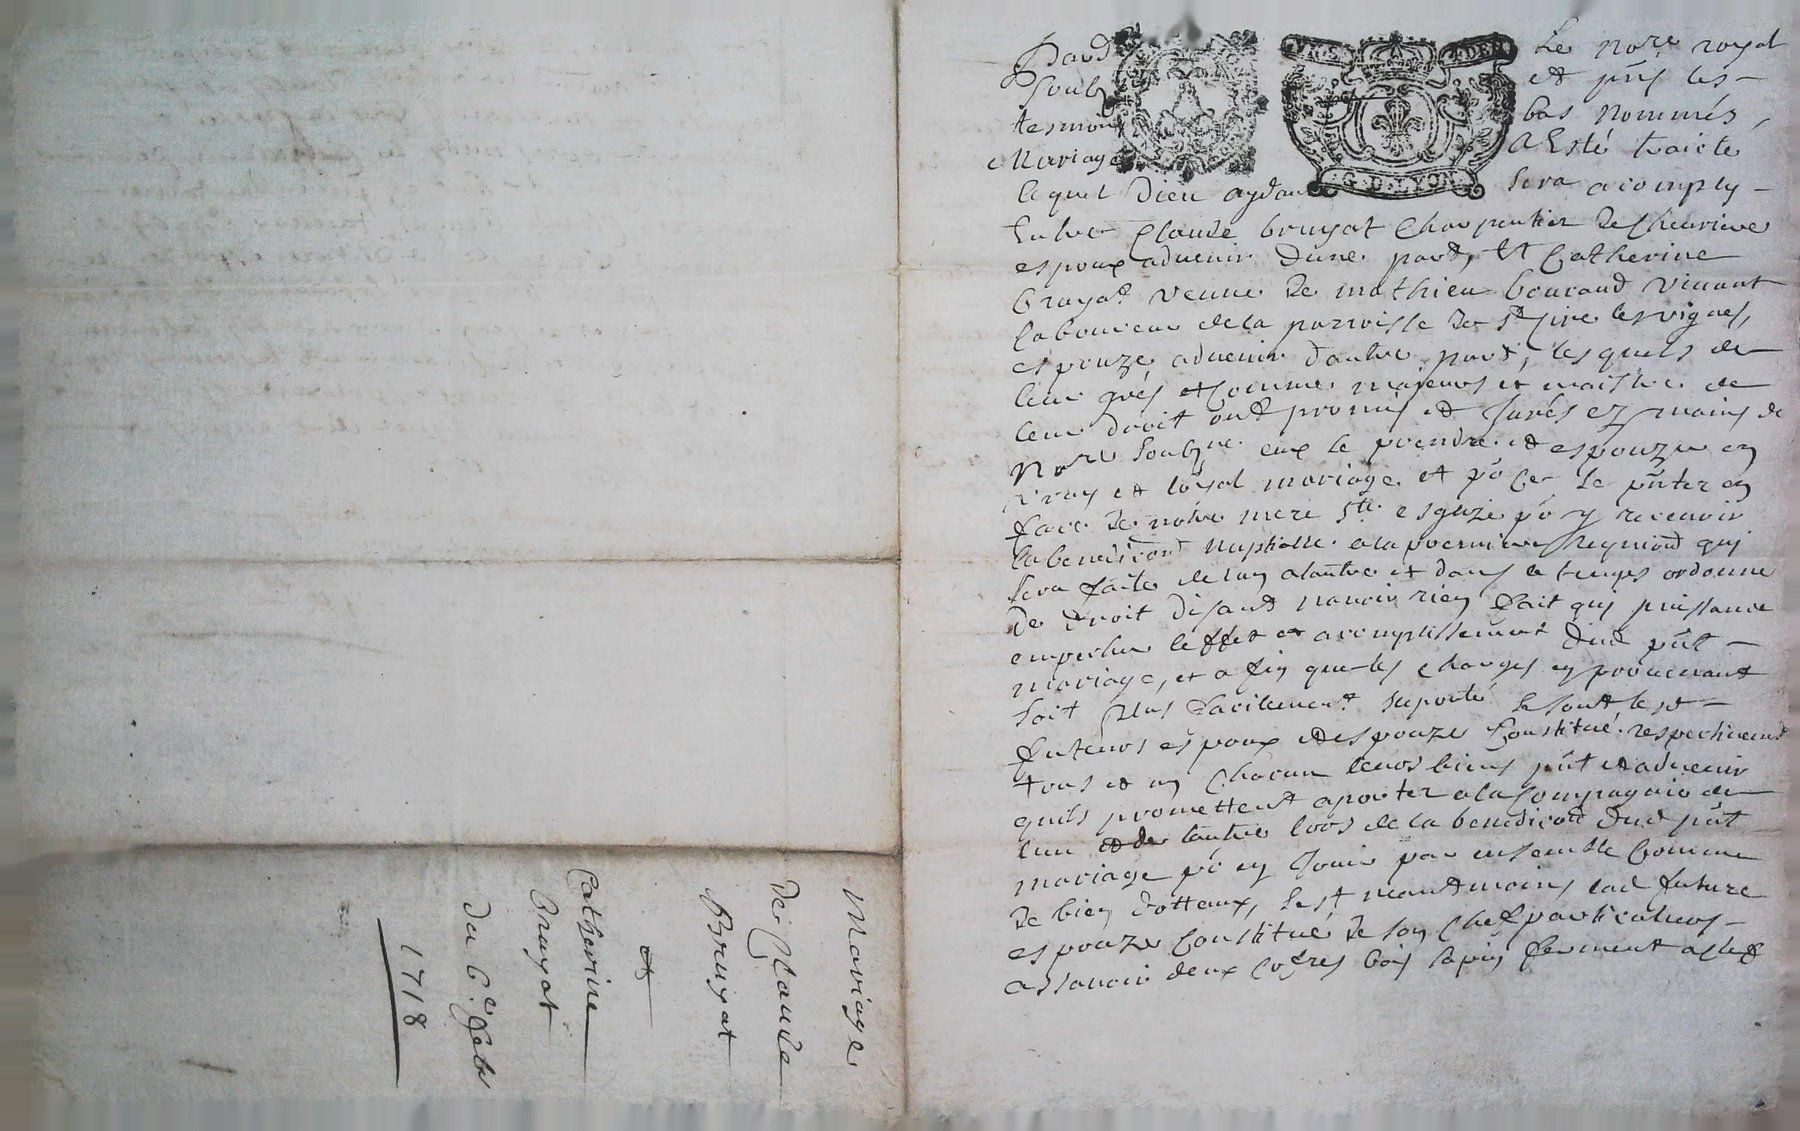 Mariage
De Claude
Bruyat
et
Catherine
Bruyat
du 6e febr
1718
Pard le nore royal
soubz et pnts les
tesmoins bas nommés,
Mariage a Esté traicté
lequel Dieu aydant sera acomply
Entre Claude bruyat Charpentier de Chevrieres
espoux advenir d'une part, Et Catherine
bruyat veuve de mathieu bouraud vivant
laboureur de la parroisse de St Sire les vignes,
espouze advenir dautre part, lesquels de
leur grés et comme majeurs et maistre de
leur droit ont promis et Jurés ez mains de
Nore soubzne eux se prendre et espouzer en
vray et loyal mariage et po ce se pnter en
face de nostre mere Ste esglize po y recevoir
la benediction Nuptialle a la premiere requisition qui
sera faite de lun alautre et dans le temps ordonne
de droit disant navoir rien fait qui puissance
empecher leffet et acomplissement dud pnt
mariage, et afin que les charges en provenant
soit plus facilement suporté se sont lesd
futeurs espoux et espouze Constitué respectivement
tous et un chacun leurs biens pnt et advenir
quils promettent aporter a la Compagnie de
lun et de lautre lors de la benediction dud pnt
mariage po en Jouir par ensemble Comme
de bien dottaux, sest neantmoins lad future
espouze Constitué de son chef particulier
assavoir deux coffres bois sapin ferment a clef
G. D. LYON